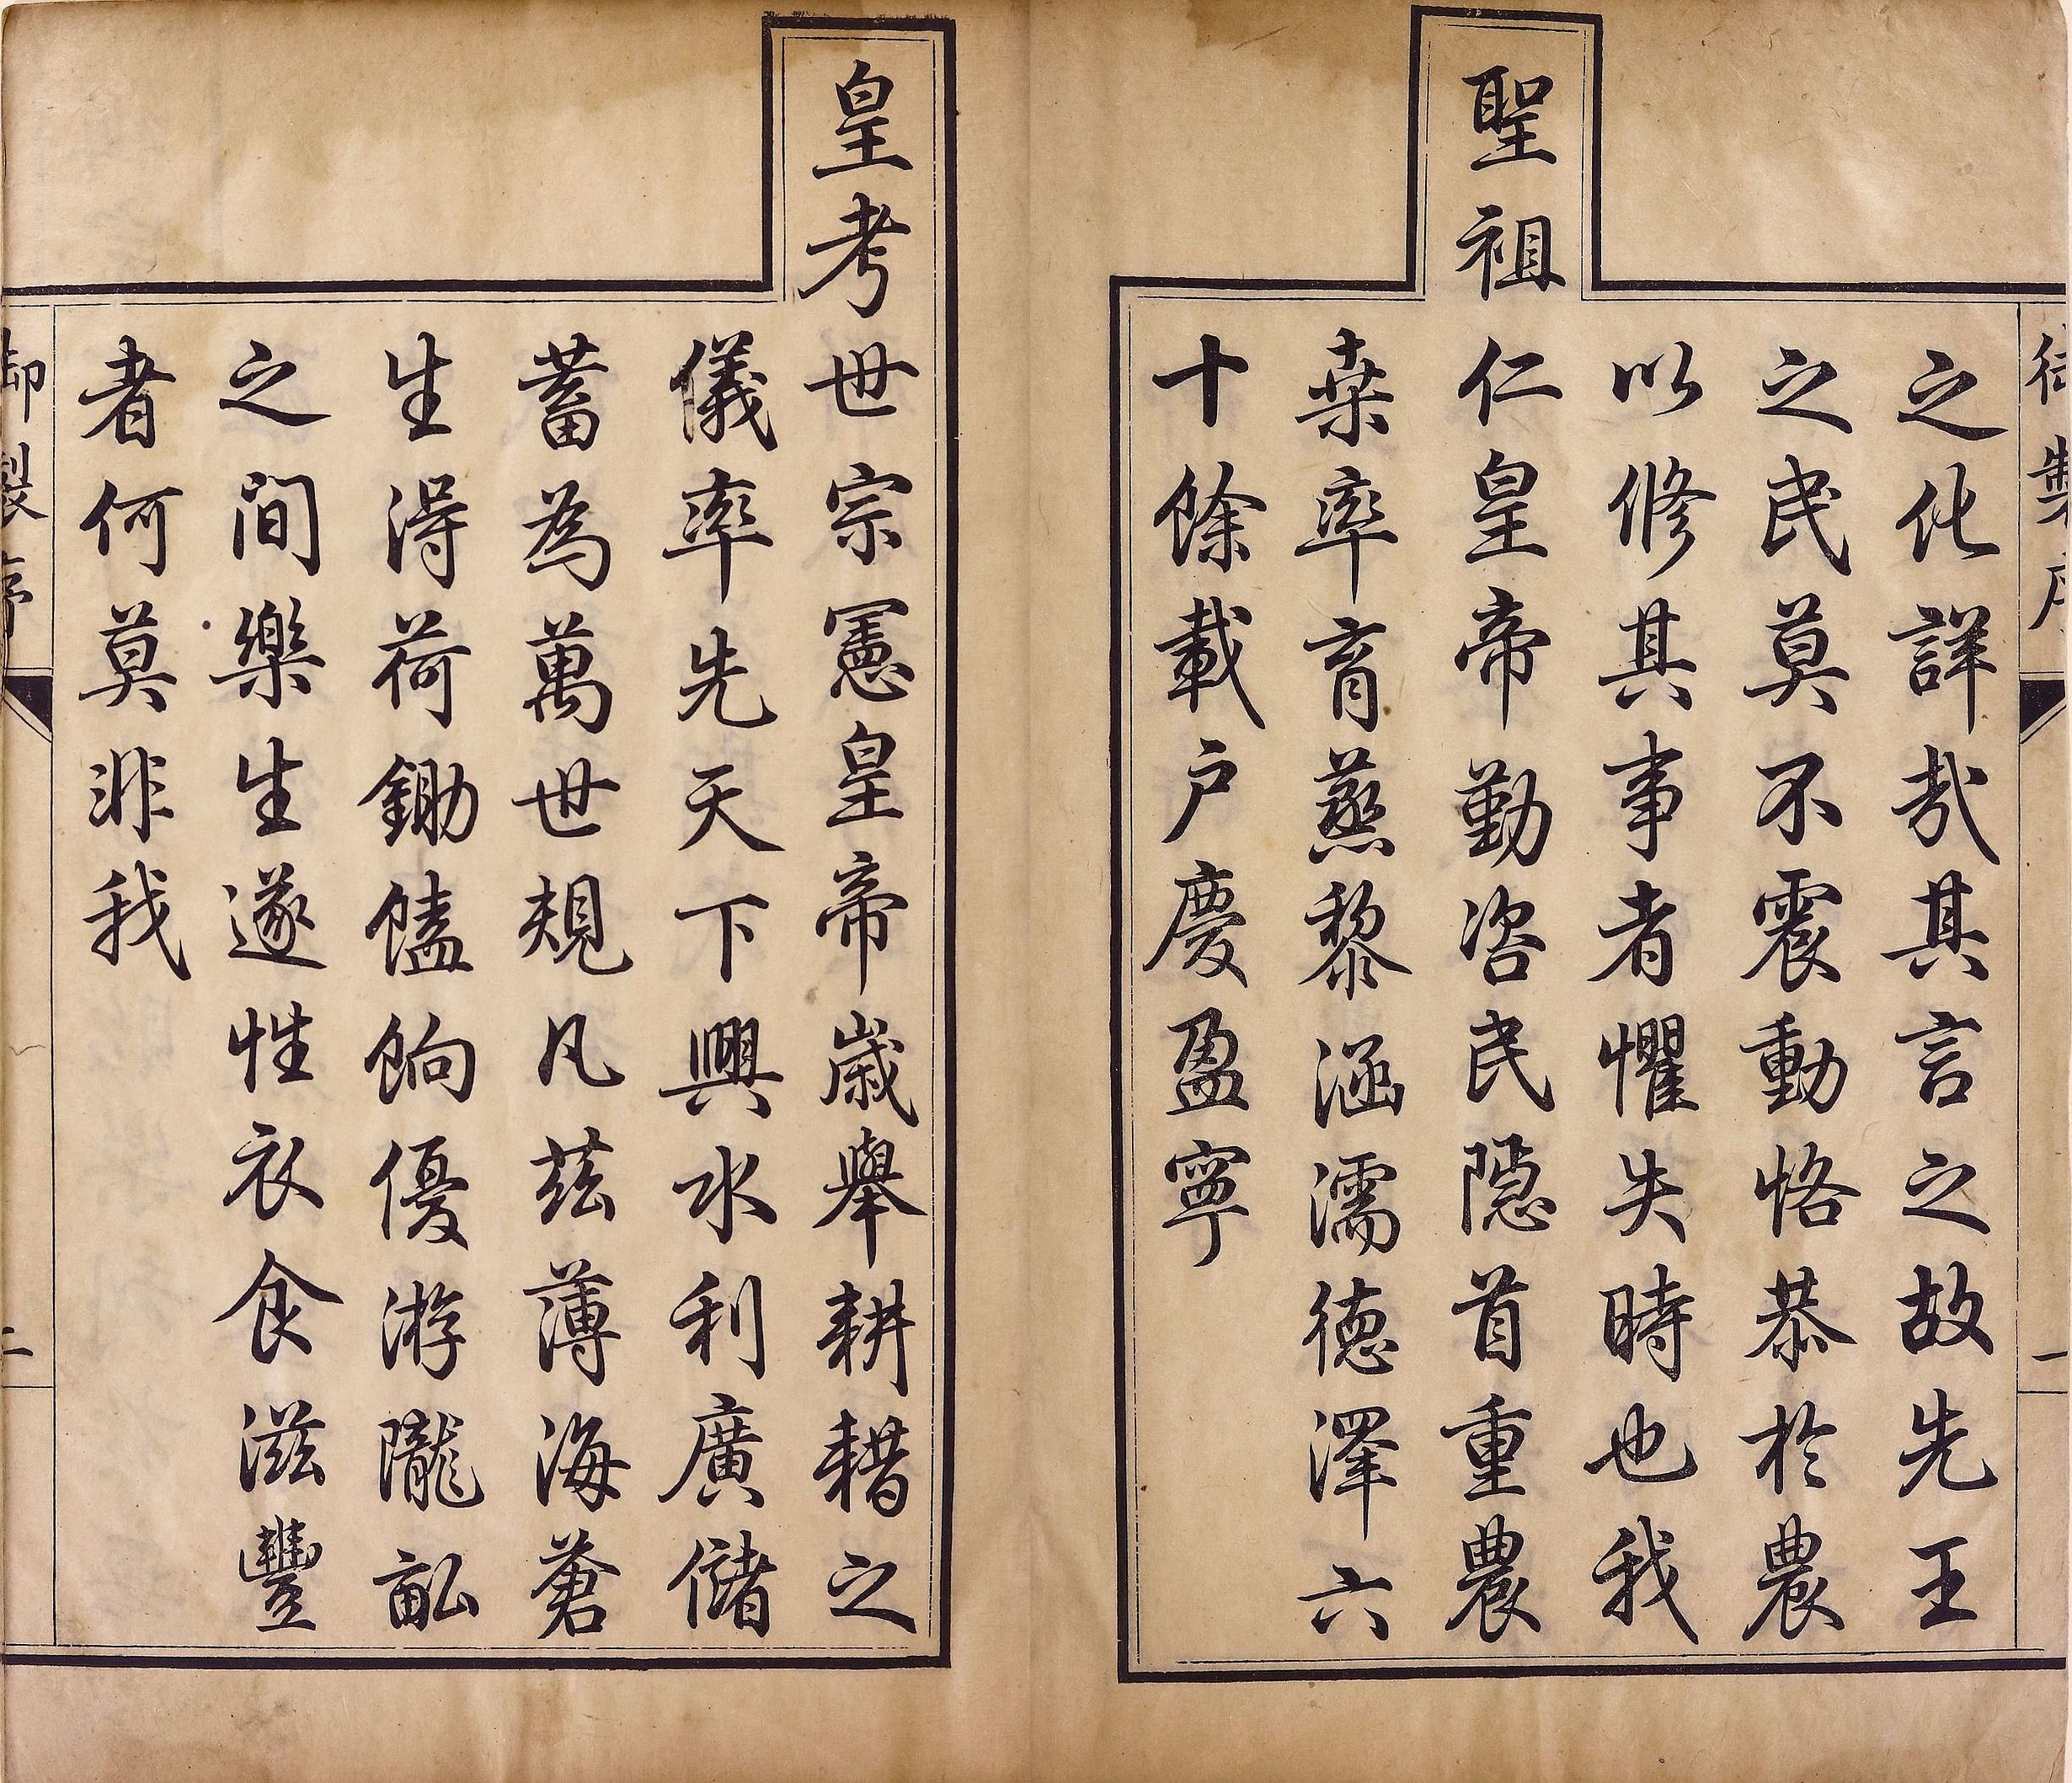 御製序
一
之化詳哉其言之故先王
之民莫不震動恪恭於農
以修其事者懼失時也我
聖祖仁皇帝勤咨民隱首重農
桒率育蒸黎涵濡德澤六
十餘載戶慶盈寧
皇考世宗憲皇帝歲舉耕耤之
儀率先天下興水利廣儲
蓄為萬世規凡茲薄海蒼
生得荷鋤饁餉優游隴畝
之間樂生遂性衣食滋豐
者何莫非我
御製序
二